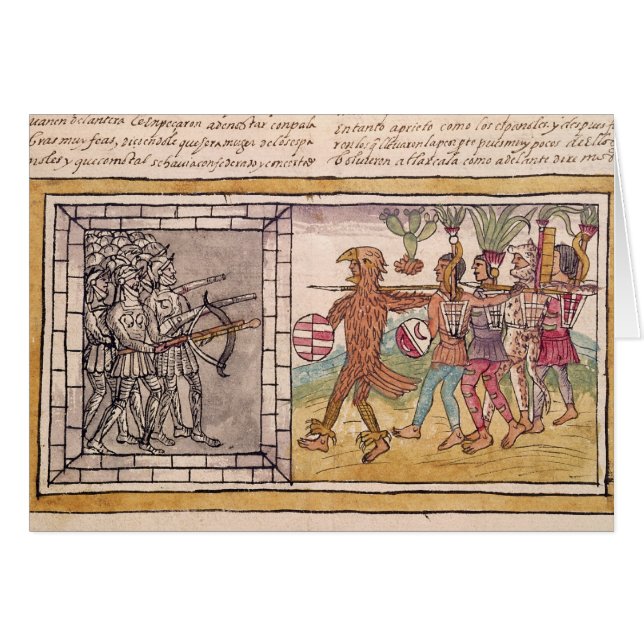 uanen delantera le enpeçaron a denostar con pala
bras muy feas, diciendole que sera muger de los espa
ñoles y que como tal se havia confederado y concerta
En tanto aprieto como los españoles. y despues fu
eron los q̃ llevaron lo peor pues muy pocos dellos
bolvieron a tlaxcala como adelante diremos